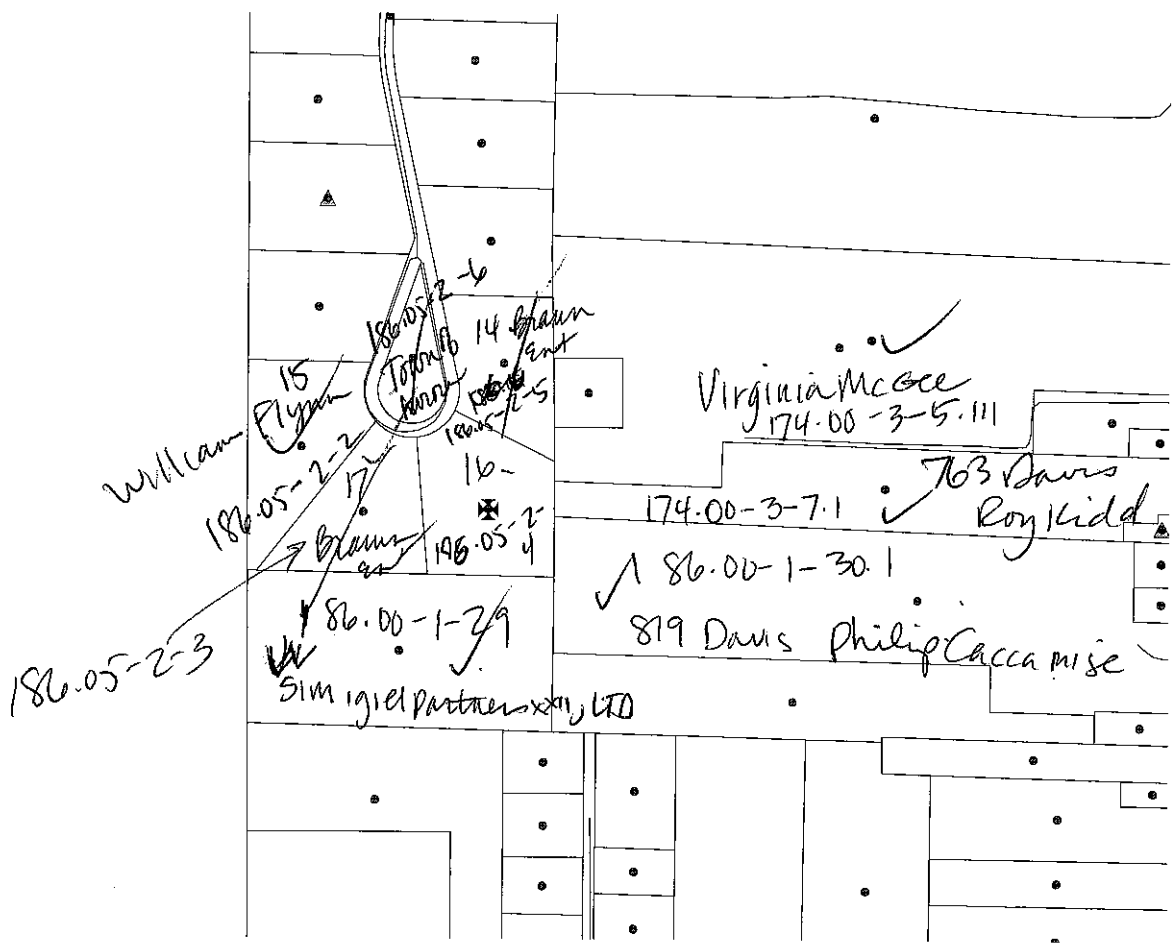 186.05-2-6
Town of
14 Braun
Ent
186.05-2-5
15
William Flynn
186.05-2-2
17
Braun
Ent
16-
186.05-2-
4
186.05-2-3
Virginia McGee
174.00-3-5.111
763 Davis
Roy Kidd
174.00-3-7.1
186.00-1-30.1
819 Davis Philip Caccamise
186.00-1-29
Partners XXIII, LTD